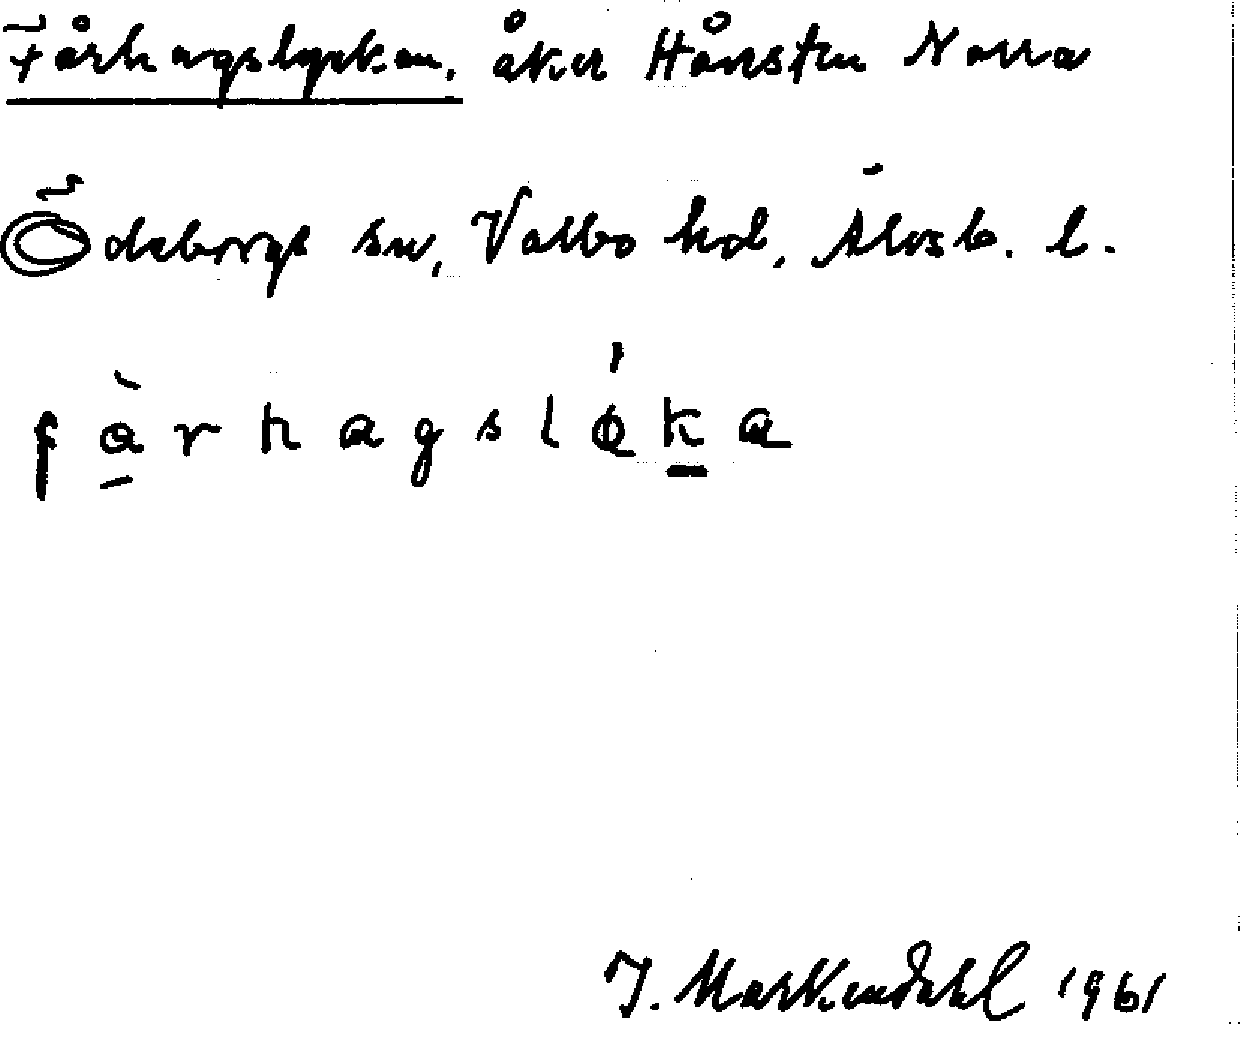 Fårhagslyckan, åker Hånsten Norra
Ödeborgs sn, Valbo hd, Älvsb. l.
fàrhagslǿka
J. Markendahl 1961